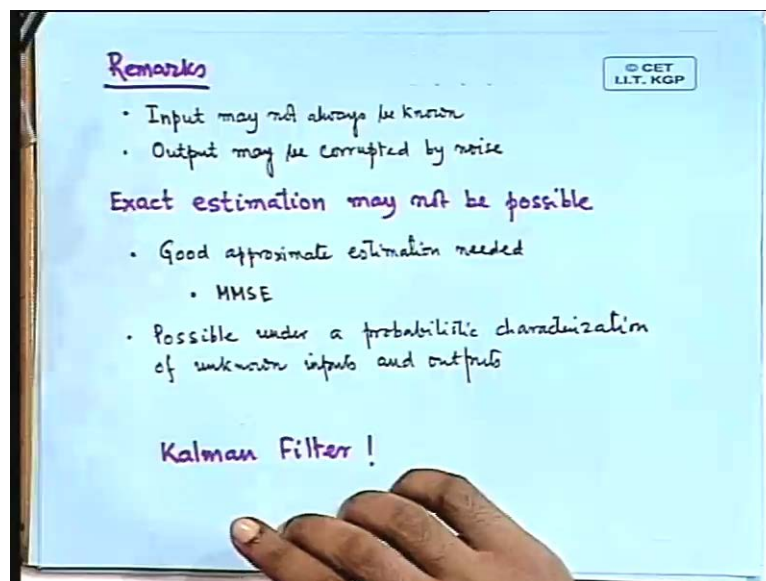 Remarks
© CET
I.I.T. KGP
· Input may not always be known
· Output may be corrupted by noise
Exact estimation may not be possible
· Good approximate estimation needed
· MMSE
· Possible under a probabilistic characterization
of unknown inputs and outputs
Kalman Filter !